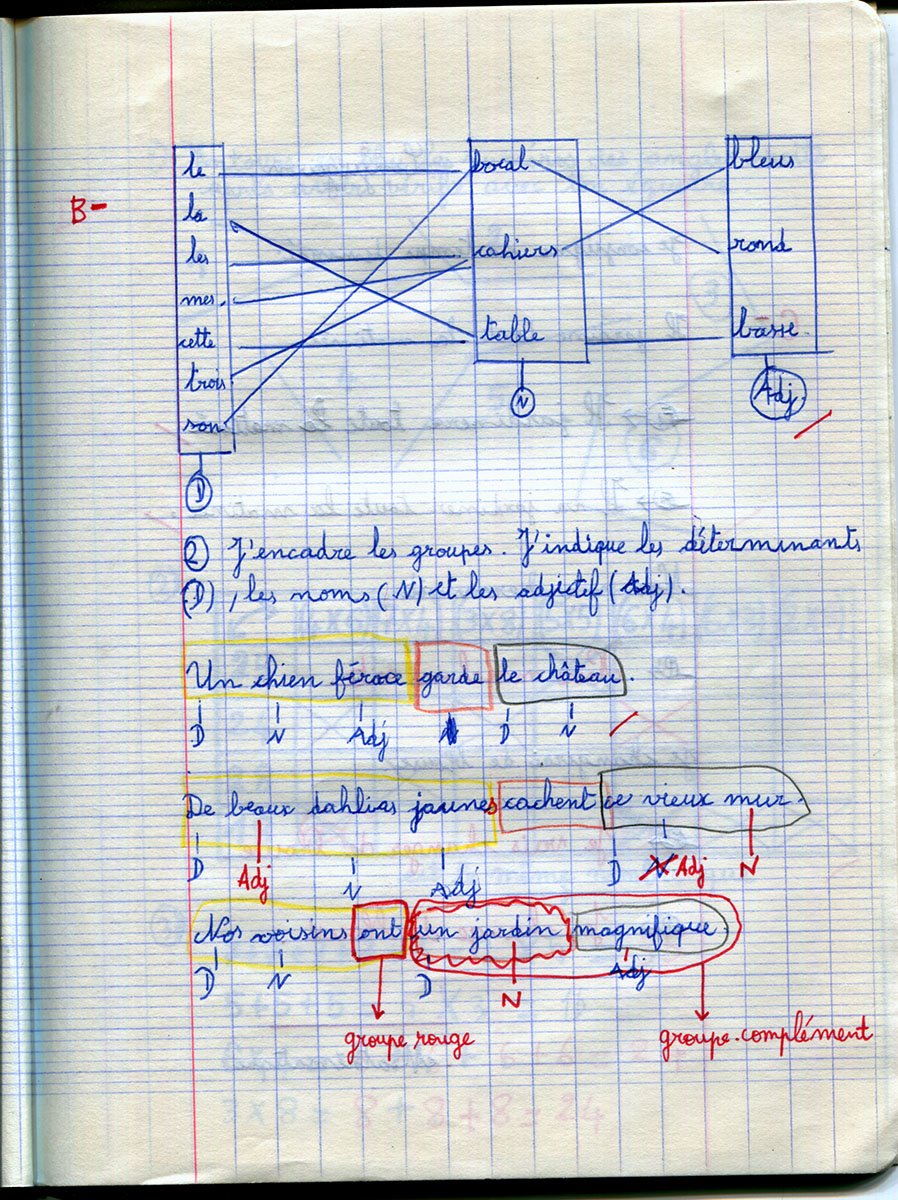 B-
le bocal bleus
la
les cahiers rond
mes
cette table basse
trois
son
N Adj
D
② J'encadre les groupes. J'indique les déterminants
(D), les noms (N) et les adjectif (Adj).
Un chien féroce garde le château.
D N Adj N D N
De beaux dahlias jaunes cachent ce vieux mur.
D Adj N Adj D N Adj N
Nos voisins ont un jardin magnifique
D N D N Adj
groupe rouge groupe complément
3 x 8 = 8 + 8 + 8 = 24